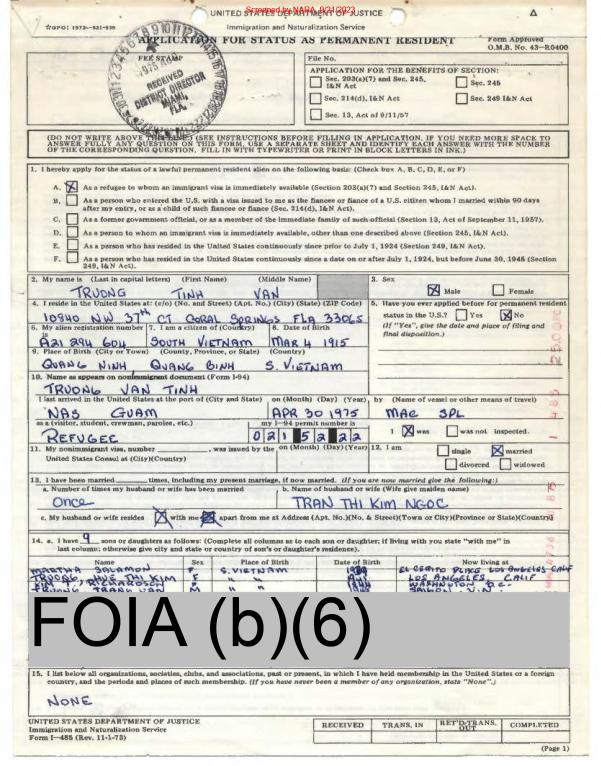 Screened by NARA, 9/21/2023
UNITED STATES DEPARTMENT OF JUSTICE
☆GPO: 1973-
Immigration and Naturalization Service
APPLICATION FOR STATUS AS PERMANENT RESIDENT
Form Approved
O.M.B. No. 43-R0400
FEE STAMP
RECEIVED
DISTRICT DIRECTOR
MIAMI,
FLA.
File No.
APPLICATION FOR THE BENEFITS OF SECTION:
Sec. 203(a)(7) and Sec. 245, I&N Act
Sec. 245
Sec. 214(d), I&N Act
Sec. 249 I&N Act
Sec. 13, Act of 9/11/57
(DO NOT WRITE ABOVE THIS LINE) (SEE INSTRUCTIONS BEFORE FILLING IN APPLICATION. IF YOU NEED MORE SPACE TO
ANSWER FULLY ANY QUESTION ON THIS FORM, USE A SEPARATE SHEET AND IDENTIFY EACH ANSWER WITH THE NUMBER
OF THE CORRESPONDING QUESTION. FILL IN WITH TYPEWRITER OR PRINT IN BLOCK LETTERS IN INK.)
1. I hereby apply for the status of a lawful permanent resident alien on the following basis: (Check box A, B, C, D, E, or F)
A. X As a refugee to whom an immigrant visa is immediately available (Section 203(a)(7) and Section 245, I&N Act).
B. As a person who entered the U.S. with a visa issued to me as the fiancee or fiance of a U.S. citizen whom I married within 90 days
after my entry, or as a child of such fiancee or fiance (Sec. 214(d), I&N Act).
C. As a former government official, or as a member of the immediate family of such official (Section 13, Act of September 11, 1957).
D. As a person to whom an immigrant visa is immediately available, other than one described above (Section 245, I&N Act).
E. As a person who has resided in the United States continuously since prior to July 1, 1924 (Section 249, I&N Act).
F. As a person who has resided in the United States continuously since a date on or after July 1, 1924, but before June 30, 1948 (Section
249, I&N Act).
2. My name is (Last in capital letters) (First Name) (Middle Name)
TRUONG TINH VAN
3. Sex
X Male Female
4. I reside in the United States at: (c/o) (No. and Street) (Apt. No.) (City) (State) (ZIP Code)
10840 NW 37TH CT CORAL SPRINGS FLA 33065
5. Have you ever applied before for permanent resident
status in the U.S.? Yes X No
(If "Yes", give the date and place of filing and
final disposition.)
6. My alien registration number is
A21 294 604
7. I am a citizen of (Country)
SOUTH VIETNAM
8. Date of Birth
MAR 4 1915
9. Place of Birth (City or Town) (County, Province, or State) (Country)
QUANG NINH QUANG BINH S. VIETNAM
10. Name as appears on nonimmigrant document (Form I-94)
TRUONG VAN TINH
I last arrived in the United States at the port of (City and State) on (Month) (Day) (Year), by (Name of vessel or other means of travel)
NAS GUAM APR 30 1975 MAC SPL
as a (visitor, student, crewman, parolee, etc.) my I-94 permit number is
REFUGEE 021 52 22 I X was was not inspected.
11. My nonimmigrant visa, number, was issued by the on (Month) (Day) (Year)
United States Consul at (City)(Country)
12. I am
single X married
divorced widowed
13. I have been married times, including my present marriage, if now married. (If you are now married give the following:)
a. Number of times my husband or wife has been married
Once
b. Name of husband or wife (Wife give maiden name)
TRAN THI KIM NGOC
c. My husband or wife resides X with me apart from me at Address (Apt. No.)(No. & Street)(Town or City)(Province or State)(Country)
14. a. I have 9 sons or daughters as follows: (Complete all columns as to each son or daughter; if living with you state "with me" in
last column; otherwise give city and state or country of son's or daughter's residence).
Name Sex Place of Birth Date of Birth Now living at
MARTHA SALAMON F S. VIETNAM EL CERITO PLACE LOS ANGELES CALIF
TRUONG HUE THI KIM F " " LOS ANGELES, CALIF
KIM T. RICHARDSON F " " WASHINGTON D.C.
TRUONG TRANG VAN M " " SAIGON V.N.
FOIA (b)(6)
15. I list below all organizations, societies, clubs, and associations, past or present, in which I have held membership in the United States or a foreign
country, and the periods and places of such membership. (If you have never been a member of any organization, state "None".)
NONE
UNITED STATES DEPARTMENT OF JUSTICE
Immigration and Naturalization Service
Form I-485 (Rev. 11-1-73)
RECEIVED TRANS. IN RET'D-TRANS. OUT COMPLETED
(Page 1)